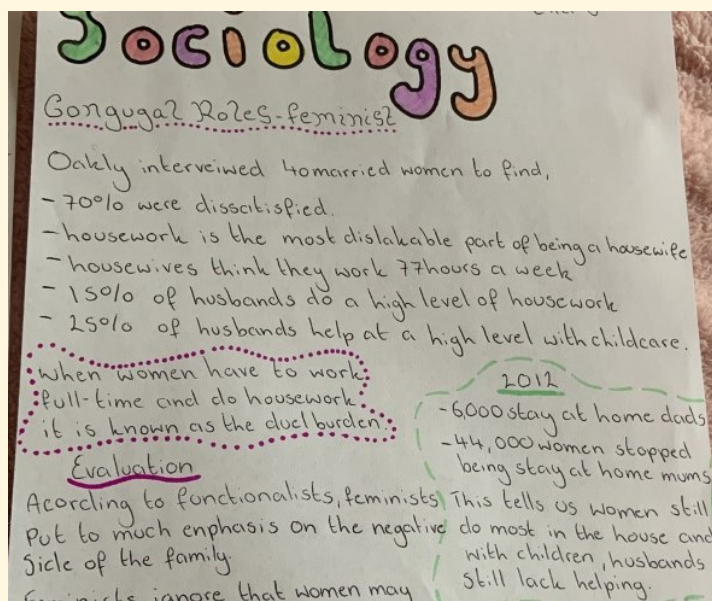 Sociology
Gongugal Roles-feminist
Oakly interveiwed 40 married women to find,
- 70% were disscitisfied.
- housework is the most dislakable part of being a housewife
- housewives think they work 77 hours a week
- 15% of husbands do a high level of housework
- 25% of husbands help at a high level with childcare.
when women have to work
full-time and do housework
it is known as the duel burden.
Evaluation
Acording to functionalists, feminists
Put to much enphasis on the negative
side of the family.
ignore that women may
2012
- 6,000 stay at home dads
- 44,000 women stopped
being stay at home mums
This tells us women still
do most in the house and
with children, husbands
still lack helping.